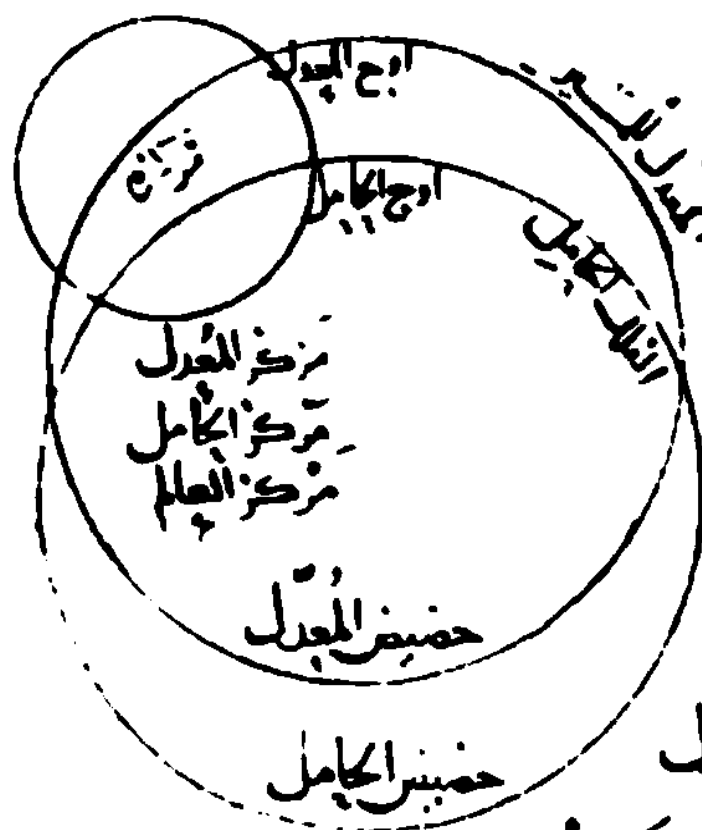 اوج المعدل
المعدل للمسير
اوج الحامل
الفلك الحامل
مركز المُعدل
مركز الحامل
مركز العالم
حضيض المُعدّل
حضيض الحامل